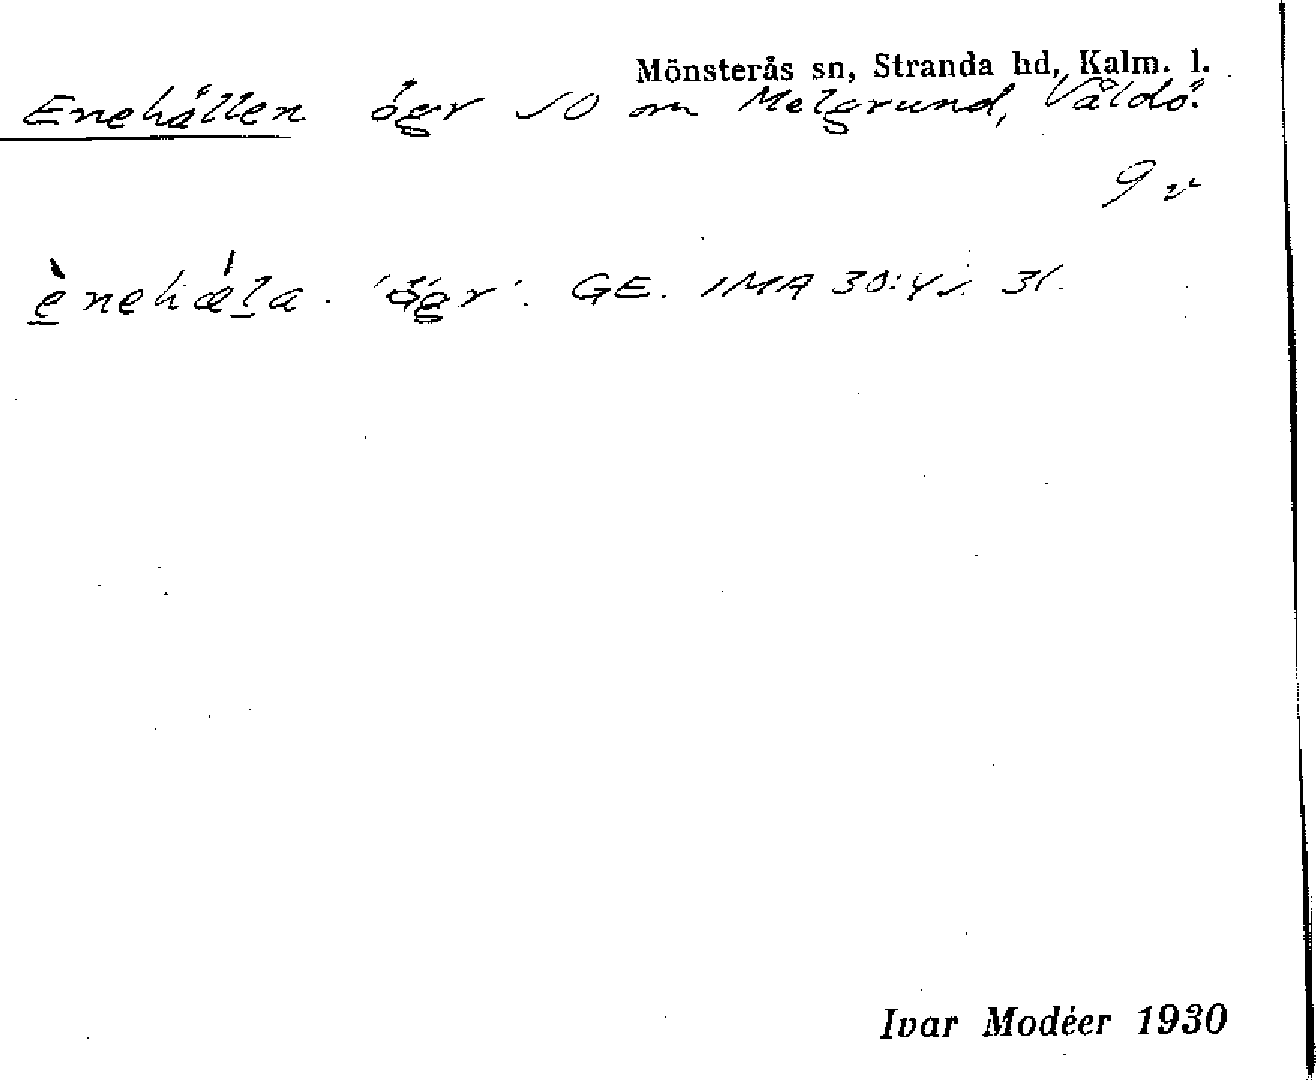 Mönsterås sn, Stranda hd, Kalm. l.
Enehällen ögr SO om Melgrund, Våldö.
9 v
ènehæla. 'ögr'. GE. IMA 30:4 s. 31.
Ivar Modéer 1930